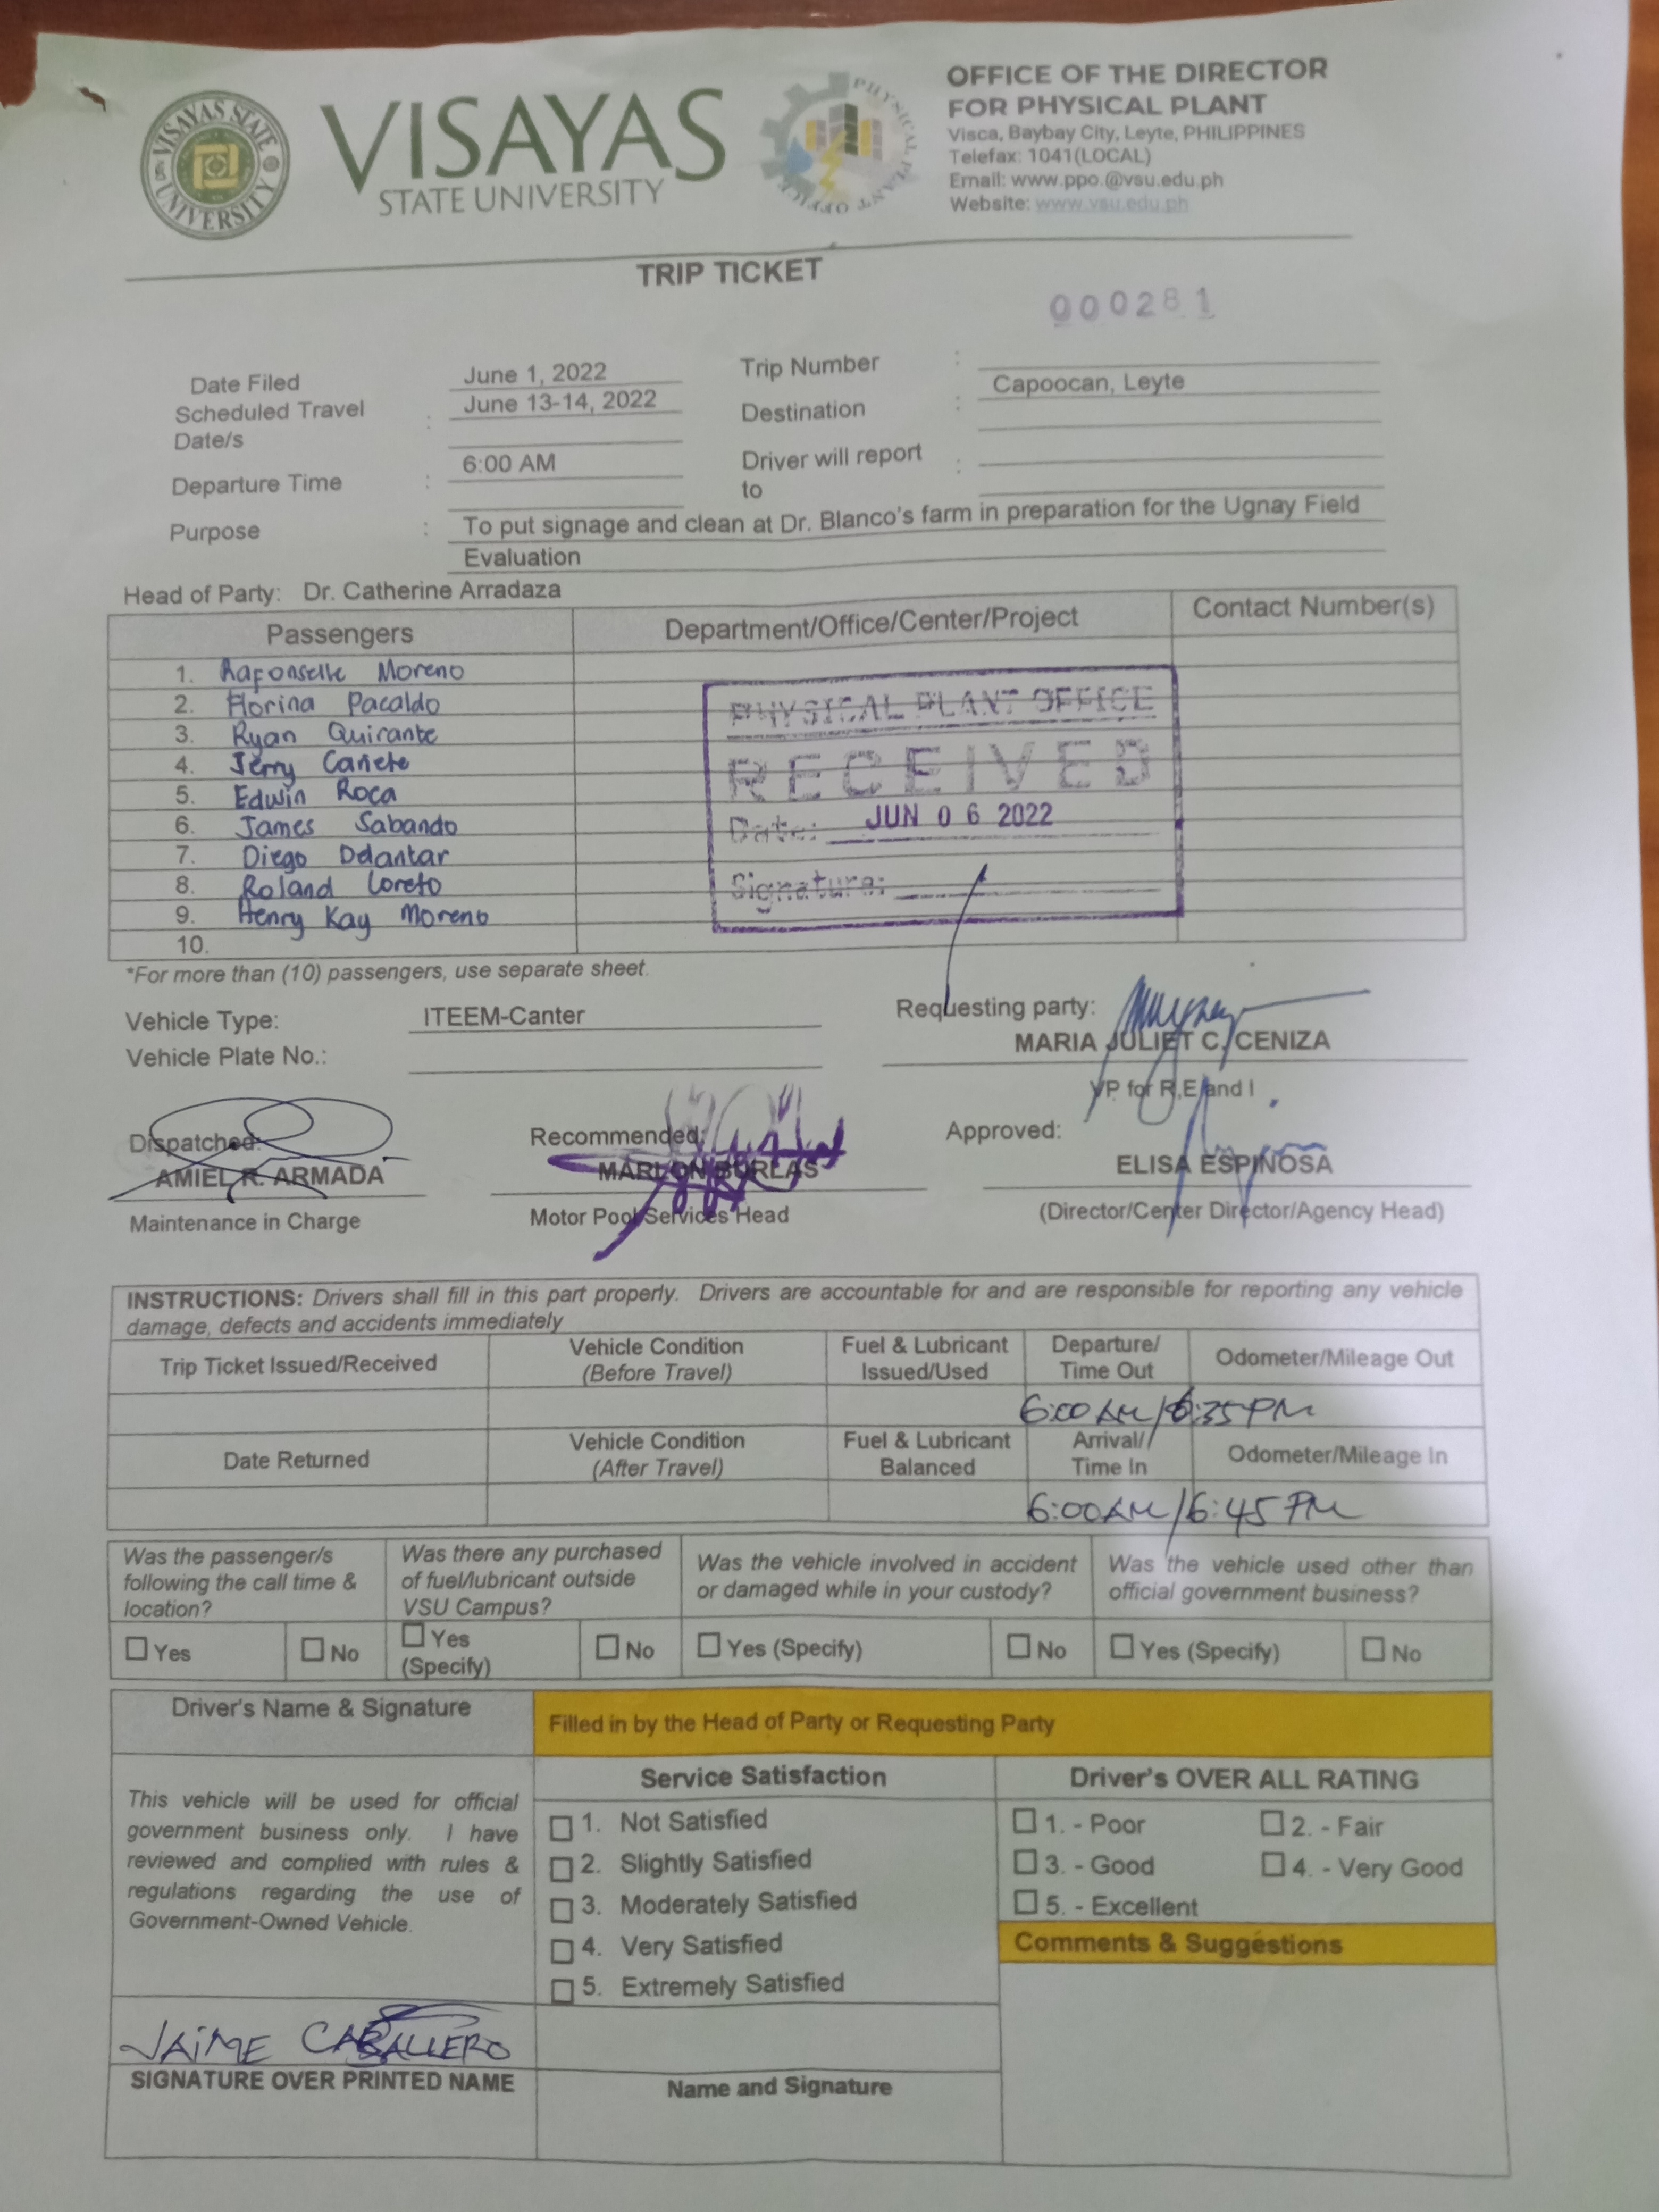 VISAYAS STATE UNIVERSITY
VISAYAS
STATE UNIVERSITY
PHYSICAL PLANT OFFICE
OFFICE OF THE DIRECTOR
FOR PHYSICAL PLANT
Visca, Baybay City, Leyte, PHILIPPINES
Telefax: 1041(LOCAL)
Email: www.ppo.@vsu.edu.ph
Website: www.vsu.edu.ph
TRIP TICKET
000281
Date Filed June 1, 2022 Trip Number :
Scheduled Travel Date/s : June 13-14, 2022 Destination : Capoocan, Leyte
Departure Time : 6:00 AM Driver will report to :
Purpose : To put signage and clean at Dr. Blanco's farm in preparation for the Ugnay Field
Evaluation
Head of Party: Dr. Catherine Arradaza
Passengers Department/Office/Center/Project Contact Number(s)
1. Rafonselle Moreno
2. Florina Pacaldo
3. Ryan Quirante
4. Jerry Cañete
5. Edwin Roca
6. James Sabando
7. Diego Delantar
8. Roland Loreto
9. Henry Kay Moreno
10.
PHYSICAL PLANT OFFICE
RECEIVED
Date: JUN 06 2022
Signature:
*For more than (10) passengers, use separate sheet.
Vehicle Type: ITEEM-Canter Requesting party:
Vehicle Plate No.: MARIA JULIET C. CENIZA
VP for R,E and I
Dispatched: Recommended: Approved:
AMIEL R. ARMADA MARLON BURLAS ELISA ESPINOSA
Maintenance in Charge Motor Pool Services Head (Director/Center Director/Agency Head)
INSTRUCTIONS: Drivers shall fill in this part properly. Drivers are accountable for and are responsible for reporting any vehicle
damage, defects and accidents immediately
Trip Ticket Issued/Received Vehicle Condition (Before Travel) Fuel & Lubricant Issued/Used Departure/ Time Out Odometer/Mileage Out
6:00 AM/6:35 PM
Date Returned Vehicle Condition (After Travel) Fuel & Lubricant Balanced Arrival/ Time In Odometer/Mileage In
6:00 AM/6:45 PM
Was the passenger/s following the call time & location? Was there any purchased of fuel/lubricant outside VSU Campus? Was the vehicle involved in accident or damaged while in your custody? Was the vehicle used other than official government business?
☐ Yes ☐ No ☐ Yes (Specify) ☐ No ☐ Yes (Specify) ☐ No ☐ Yes (Specify) ☐ No
Driver's Name & Signature Filled in by the Head of Party or Requesting Party
This vehicle will be used for official
government business only. I have
reviewed and complied with rules &
regulations regarding the use of
Government-Owned Vehicle.
JAIME CABALLERO
SIGNATURE OVER PRINTED NAME
Service Satisfaction
☐ 1. Not Satisfied
☐ 2. Slightly Satisfied
☐ 3. Moderately Satisfied
☐ 4. Very Satisfied
☐ 5. Extremely Satisfied
Name and Signature
Driver's OVER ALL RATING
☐ 1. - Poor ☐ 2. - Fair
☐ 3. - Good ☐ 4. - Very Good
☐ 5. - Excellent
Comments & Suggestions